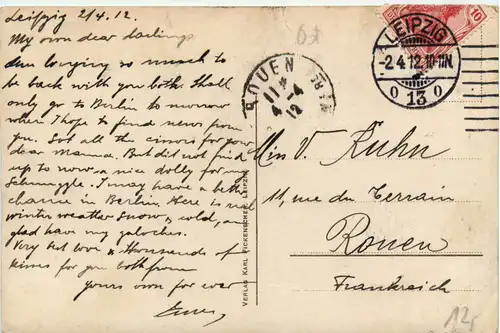 Leipzig 2/4.12.
My own dear darlings
Am longing so much to
be back with you both. Shall
only go to Berlin to morrow
when I hope to find news from
you. Got all the for your
dear Mama. But did not find
up to now a nice dolly for my
Schnuggle. I may have a better
chance in Berlin. Here is real
winter weather snow & cold, am
glad have my galoches.
Very best love & thousands of
kisses for you both from
yours own for ever
ROUEN
11 *
4 -4
12
LEIPZIG
-2.4.12.10-11N.
o 13 o
10
Miss V. Kuhn
11, rue du Terrain
Rouen
Frankreich
VERLAG KARL PICKENSCHER, LEIPZIG
12,-